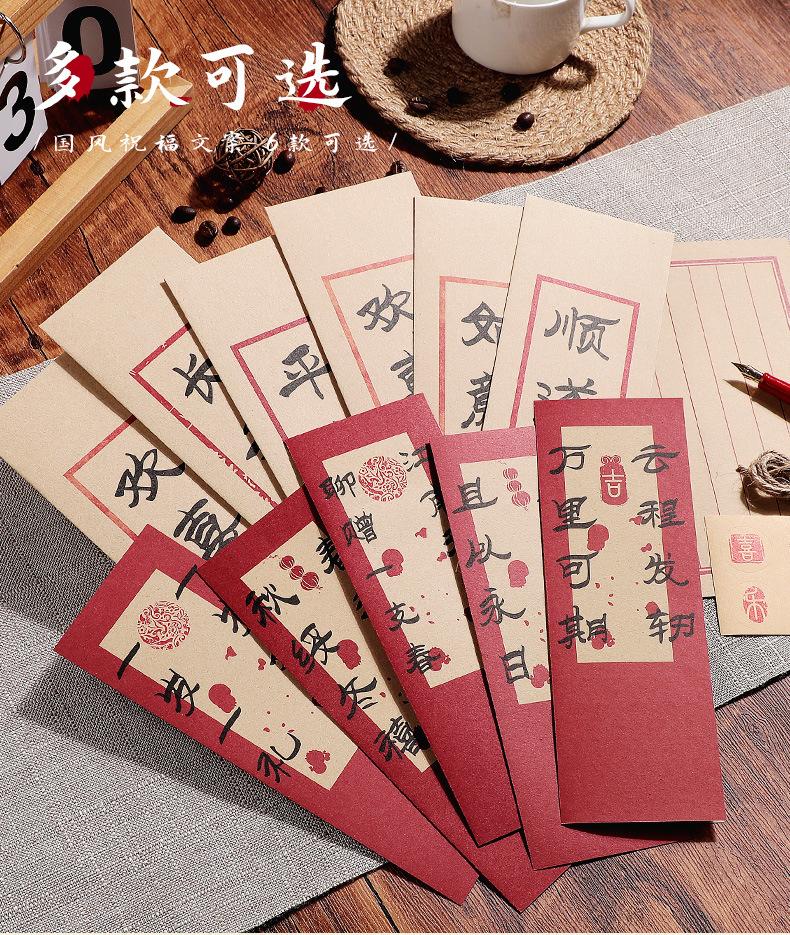 3 0
多款可选
/国风祝福文案 6款可选/
欢
长
平
欢
顺
一岁一礼
春
秋绥冬禧
江
聊赠一支春
且以永日
云程发轫
万里可期
吉
喜
乐